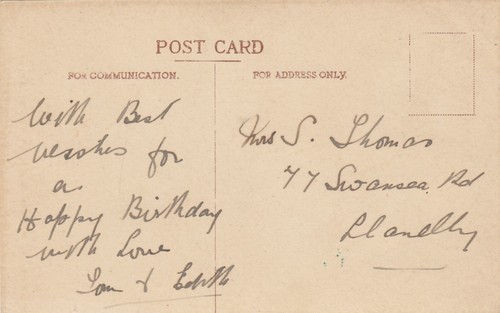 POST CARD
FOR COMMUNICATION.
FOR ADDRESS ONLY.
With Best
Wishes for
a
Happy Birthday
with Love
Tom & Edith
Mrs S. Thomas
77 Swansea Rd
Llanelly